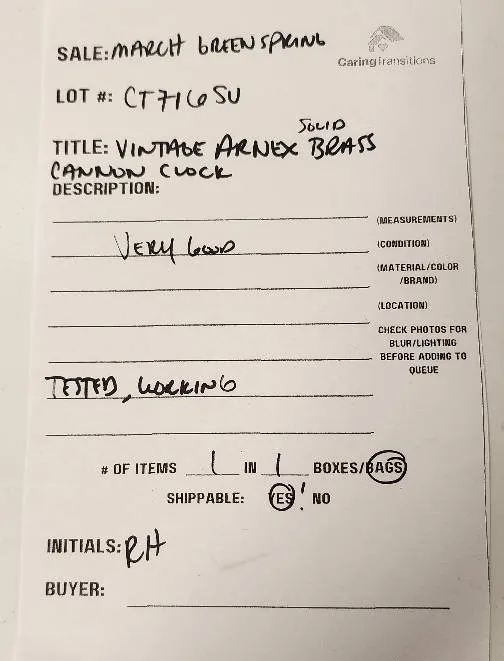 SALE: MARCH GREENSPRING
CaringTransitions
LOT #: CT716SU
SOLID
TITLE: VINTAGE ARNEX BRASS
CANNON CLOCK
DESCRIPTION:
(MEASUREMENTS)
VERY GOOD (CONDITION)
(MATERIAL/COLOR
/BRAND)
(LOCATION)
CHECK PHOTOS FOR
BLUR/LIGHTING
BEFORE ADDING TO
QUEUE
TESTED, WORKING
# OF ITEMS 1 IN 1 BOXES/BAGS
SHIPPABLE: YES! NO
INITIALS: RH
BUYER: